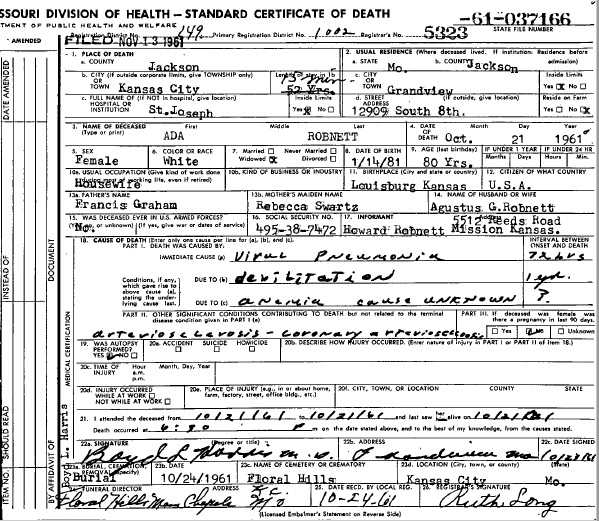 SSOURI DIVISION OF HEALTH—STANDARD CERTIFICATE OF DEATH
-61-037166
TMENT OF PUBLIC HEALTH AND WELFARE
STATE FILE NUMBER
AMENDED
FILED NOV 13 1961
Registration District No. 149 Primary Registration District No. 1002 Registrar's No. 5323
1. PLACE OF DEATH
a. COUNTY Jackson
2. USUAL RESIDENCE (Where deceased lived. If institution: Residence before admission)
a. STATE Mo. b. COUNTY Jackson
b. CITY (If outside corporate limits, give TOWNSHIP only) OR TOWN Kansas City
Length of stay in 1b
c. CITY OR TOWN Grandview
Inside Limits
Yes No
c. FULL NAME OF (If NOT in hospital, give location) HOSPITAL OR INSTITUTION St. Joseph
Inside Limits
Yes No
d. STREET ADDRESS (If outside, give location) 12909 South 8th.
Reside on Farm
Yes No
3. NAME OF DECEASED (Type or print)
First Middle Last
ADA ROBNETT
4. DATE OF DEATH Month Day Year
Oct. 21 1961
5. SEX Female
6. COLOR OR RACE White
7. Married Never Married
Widowed Divorced
8. DATE OF BIRTH 1/14/81
9. AGE (last birthday) 80 Yrs.
IF UNDER 1 YEAR Months Days
IF UNDER 24 HR Hours Min.
10a. USUAL OCCUPATION (Give kind of work done during most of working life, even if retired) Housewife
10b. KIND OF BUSINESS OR INDUSTRY
11. BIRTHPLACE (City and state or country) Louisburg Kansas
12. CITIZEN OF WHAT COUNTRY U.S.A.
13a. FATHER'S NAME Francis Graham
13b. MOTHER'S MAIDEN NAME Rebecca Swartz
14. NAME OF HUSBAND OR WIFE Agustus G.Robnett
15. WAS DECEASED EVER IN U.S. ARMED FORCES?
(Yes, no, or unknown) (If yes, give war or dates of service) No.
16. SOCIAL SECURITY NO. 495-38-7472
17. INFORMANT Howard Robnett
5512 Reeds Road
Mission Kansas.
18. CAUSE OF DEATH (Enter only one cause per line for (a), (b), and (c).
PART I. DEATH WAS CAUSED BY:
INTERVAL BETWEEN ONSET AND DEATH
IMMEDIATE CAUSE (a) Viral Pneumonia 72 hrs
Conditions, if any, which gave rise to above cause (a), stating the underlying cause last.
DUE TO (b) debilitation 1 yr.
DUE TO (c) anemia cause unknown ?
PART II. OTHER SIGNIFICANT CONDITIONS CONTRIBUTING TO DEATH but not related to the terminal disease condition given in PART I (a)
arteriosclerosis - coronary arteriosclerosis
PART III. If deceased was female was there a pregnancy in last 90 days.
Yes No Unknown
19. WAS AUTOPSY PERFORMED? YES NO
20a. ACCIDENT SUICIDE HOMICIDE
20b. DESCRIBE HOW INJURY OCCURRED. (Enter nature of injury in PART I or PART II of item 18.)
20c. TIME OF INJURY Hour a.m. p.m. Month, Day, Year
20d. INJURY OCCURRED WHILE AT WORK NOT WHILE AT WORK
20e. PLACE OF INJURY (e.g., in or about home, farm, factory, street, office bldg., etc.)
20f. CITY, TOWN, OR LOCATION COUNTY STATE
21. I attended the deceased from 10/21/61 to 10/21/61 and last saw alive on 10/21/61
Death occurred at 6:30 P m on the date stated above, and to the best of my knowledge, from the causes stated.
22a. SIGNATURE (Degree or title)
22b. ADDRESS
22c. DATE SIGNED
23a. BURIAL, CREMATION, REMOVAL (Specify) Burial
23b. DATE 10/24/1961
23c. NAME OF CEMETERY OR CREMATORY Floral Hills
23d. LOCATION (City, town, or county) (State)
Kansas City Mo.
24. FUNERAL DIRECTOR ADDRESS
Floral Hills Mem Chapels K C Mo
25. DATE RECD. BY LOCAL REG. 10-24-61
26. REGISTRAR'S SIGNATURE Ruth Long
(Licensed Embalmer's Statement on Reverse Side)
DATE AMENDED
INSTEAD OF
SHOULD READ
ITEM NO.
DOCUMENT
BY AFFIDAVIT OF
MEDICAL CERTIFICATION
L. Harris